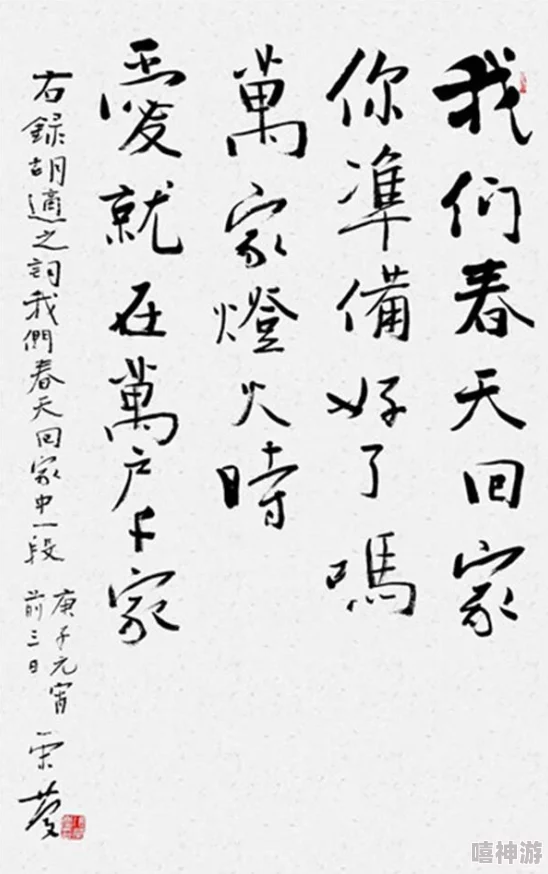 我们春天回家
你準備好了嗎
萬家燈火時
愛就在萬户千家
右録胡適之詞我們春天回家中一段
庚子元宵
前三日
嘻神游